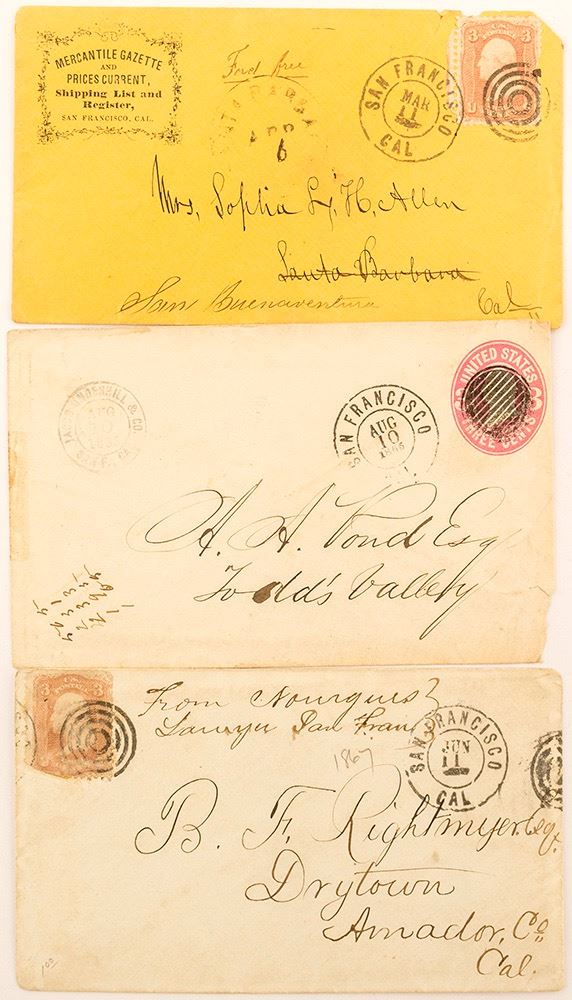 MERCANTILE GAZETTE
AND
PRICES CURRENT,
Shipping List and
Register,
SAN FRANCISCO, CAL.
Ford free
SANTA BARBARA
APR
6
SAN FRANCISCO
MAR
11
CAL
3 3
U
Mrs, Sophia L, H, Allen
Santa Barbara
San Buenaventura Cal
& CO.
AUG
SAN FRANCISCO
AUG
10
1865
UNITED STATES
THREE CENTS
A. A. Pond Esq
Todd's Valley
3 U.S. 3
POSTAGE
From Nourgues
Lawyer San Fran
1867
SAN FRANCISCO
JUN
11
CAL
B. F. Rightmyer Esq.
Drytown
Amador, Co
Cal.
1.00